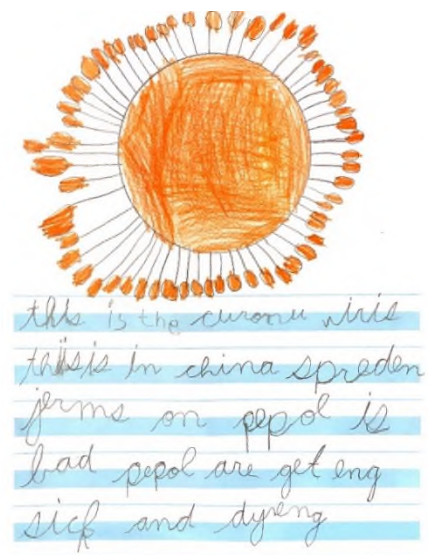 this is the curonu viris
this is in china spreden
jerms on pepol is
bad pepol are get eng
sick and dyeng